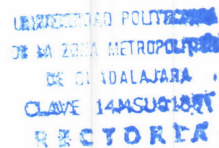 UNIVERSIDAD POLITECNICA
DE LA ZONA METROPOLITANA
DE GUADALAJARA
CLAVE
RECTORIA